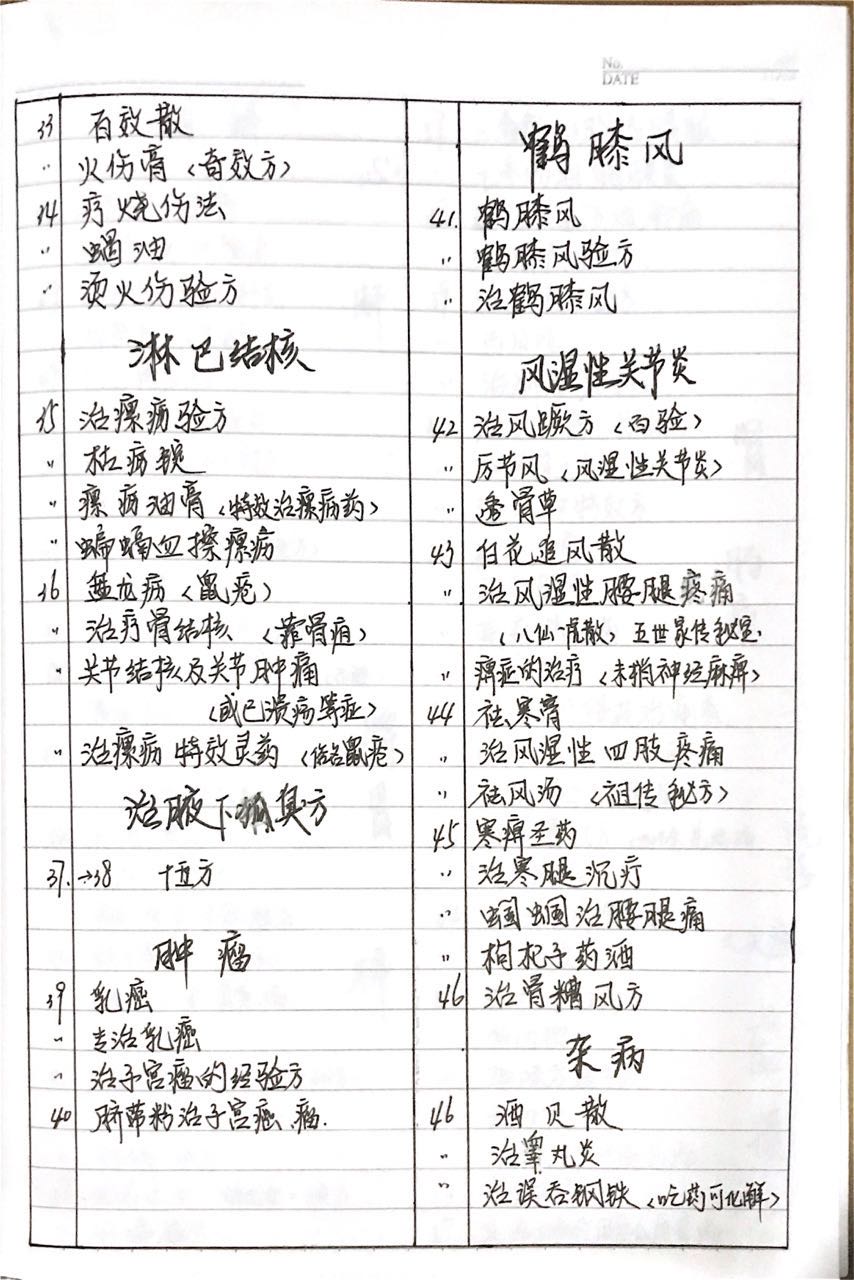 No.
DATE
33 百效散
" 火伤膏〈奇效方〉
34 疗烧伤法
" 蝎油
" 烫火伤验方
淋巴结核
35 治瘰病验方
" 枯病锭
" 瘰病油膏〈特效治瘰病药〉
" 蝙蝠血擦瘰病
36 龙病〈鼠疮〉
" 治疗骨结核〈靠骨疽〉
" 关节结核及关节肿痛
〈或已溃疡等症〉
" 治瘰病特效灵药〈俗名鼠疮〉
治腋下狐臭方
37.→38 十五方
肿瘤
39 乳癌
" 专治乳癌
" 治子宫瘤的经验方
40 脐带粉治子宫癌、瘤.
鹤膝风
41. 鹤膝风
" 鹤膝风验方
" 治鹤膝风
风湿性关节炎
42 治风蹶方〈百验〉
" 历节风〈风湿性关节炎〉
" 透骨草
43 白花追风散
" 治风湿性腰腿疼痛
〈八仙一虎散〉五世家传秘宝.
" 痹症的治疗〈未梢神经麻痹〉
44 祛寒膏
" 治风湿性四肢疼痛
" 祛风汤〈祖传秘方〉
45 寒痹圣药
" 治寒腿沉疗
" 蝈蝈治腰腿痛
" 枸杞子药酒
46 治骨糟风方
杂病
46 酒贝散
" 治睾丸炎
" 治误吞钢铁〈吃药可化解〉